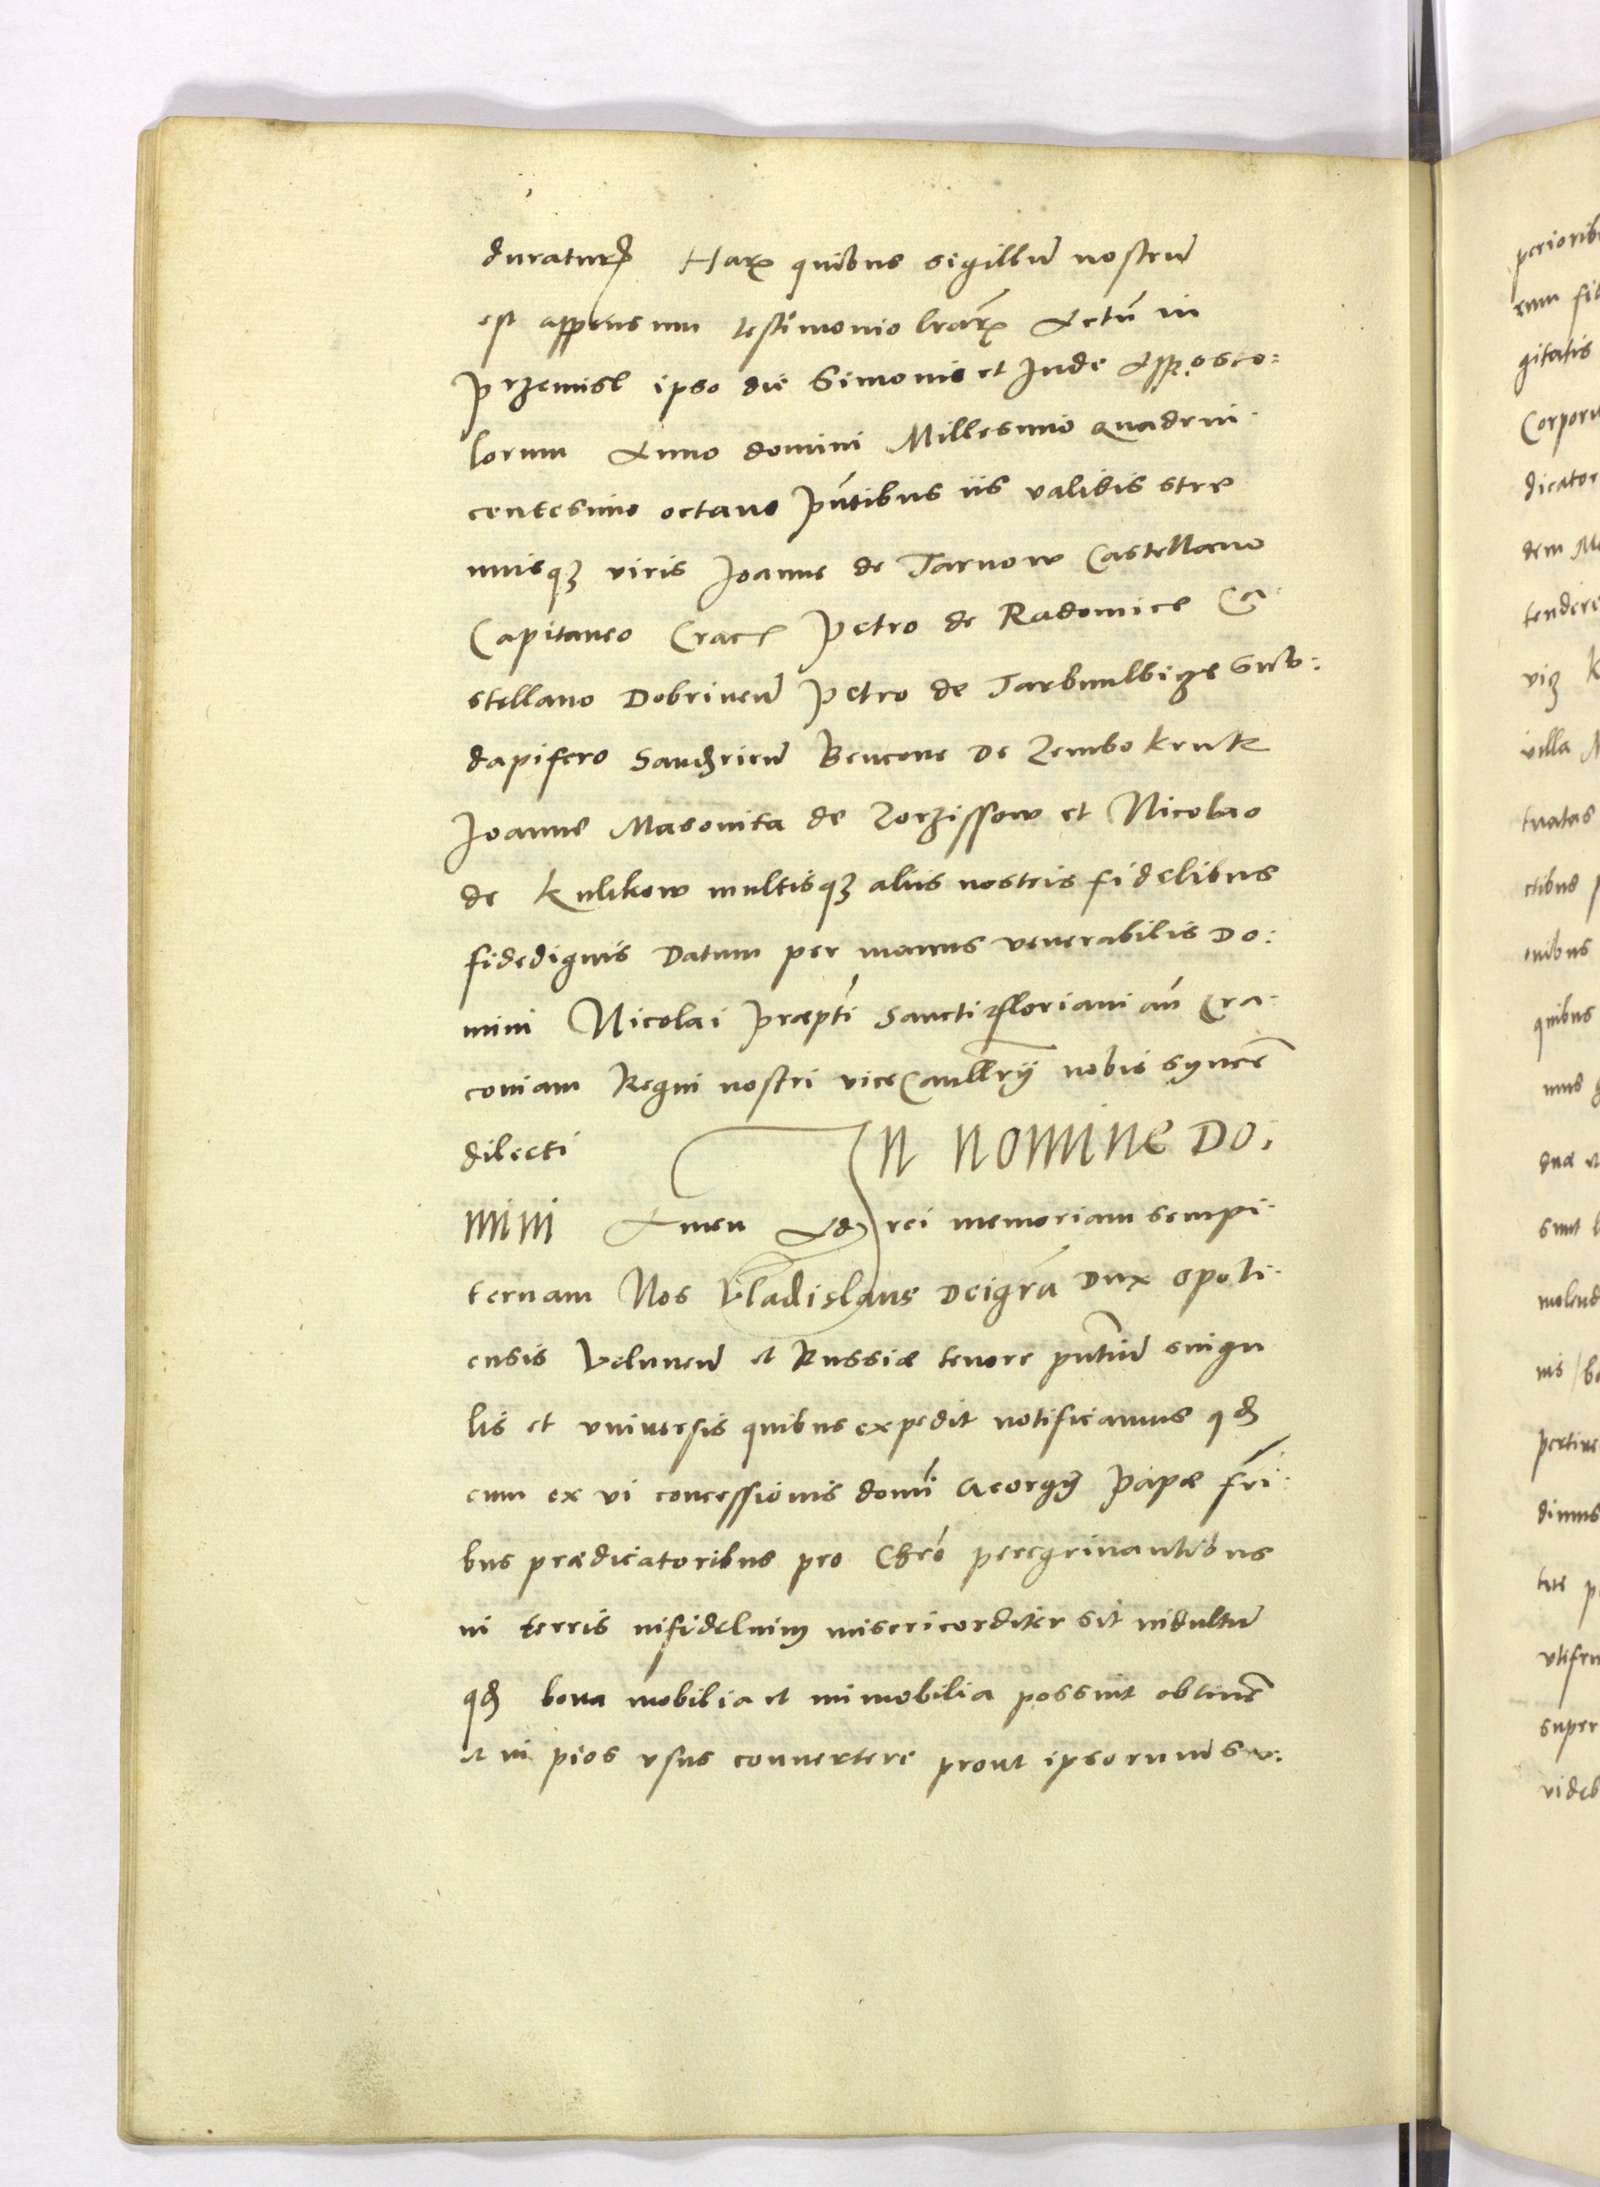 duraturū Harꝝ quibus sigillū nostrū
est appensum testimonio lrārꝝ Actū in
Przemisl ipso die Simonis et Jude Apposto:
lorum Anno domini Millesimo quadrin
centesimo octavo Pn̄tibus iis validis stre
nuisqꝫ viris Joanne de Tarnow Castellano
Capitaneo Crac Petro de Radomice Ca
stellano Dobrinen̄ Petro de
dapifero Sandzirien̄ Bencone de Zembokruk
Joanne Masovita de Zorzissow et Nicolao
de Kulikow multisqꝫ aliis nostris fidelibus
fidedignis Datum per manus venerabilis Do:
mini Nicolai Præpti Sancti Floriani an̄ Cra
coviam Regni nostri vice Cancllrij nobis syncē
dilecti In nomine Do:
mini Amen Ad rei memoriam sempi
ternam Nos Vladislaus Dei grā Dux Opoli
ensis Velunen̄ et Russiæ tenore pn̄tiū singu
lis et universis quibus expedit notificamus qđ
cum ex vi concessionis domī Georgij Papæ frī
bus prædicatoribus pro Chrō peregrinantibus
in terris infidelium misericorditer sit indultū
qđ bona mobilia et immobilia possint obtinē
et in pios usus convertere prout ipsorum su:
perioribu
rum fid
gitatis
Corporu
dicator
dem Mo
tendere
viꝫ K
villa M
tuatas
ctibus p
onibus
quibus
mus
duæ et
sunt
molend
nis / bo
pertine
dimus
tate p
utifru
super
videb